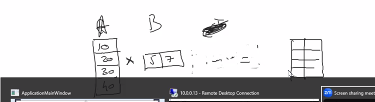 A B
10
20 × 5 7 =
30
ApplicationMainWindow
10.0.0.13 - Remote Desktop Connection
Screen sharing meet